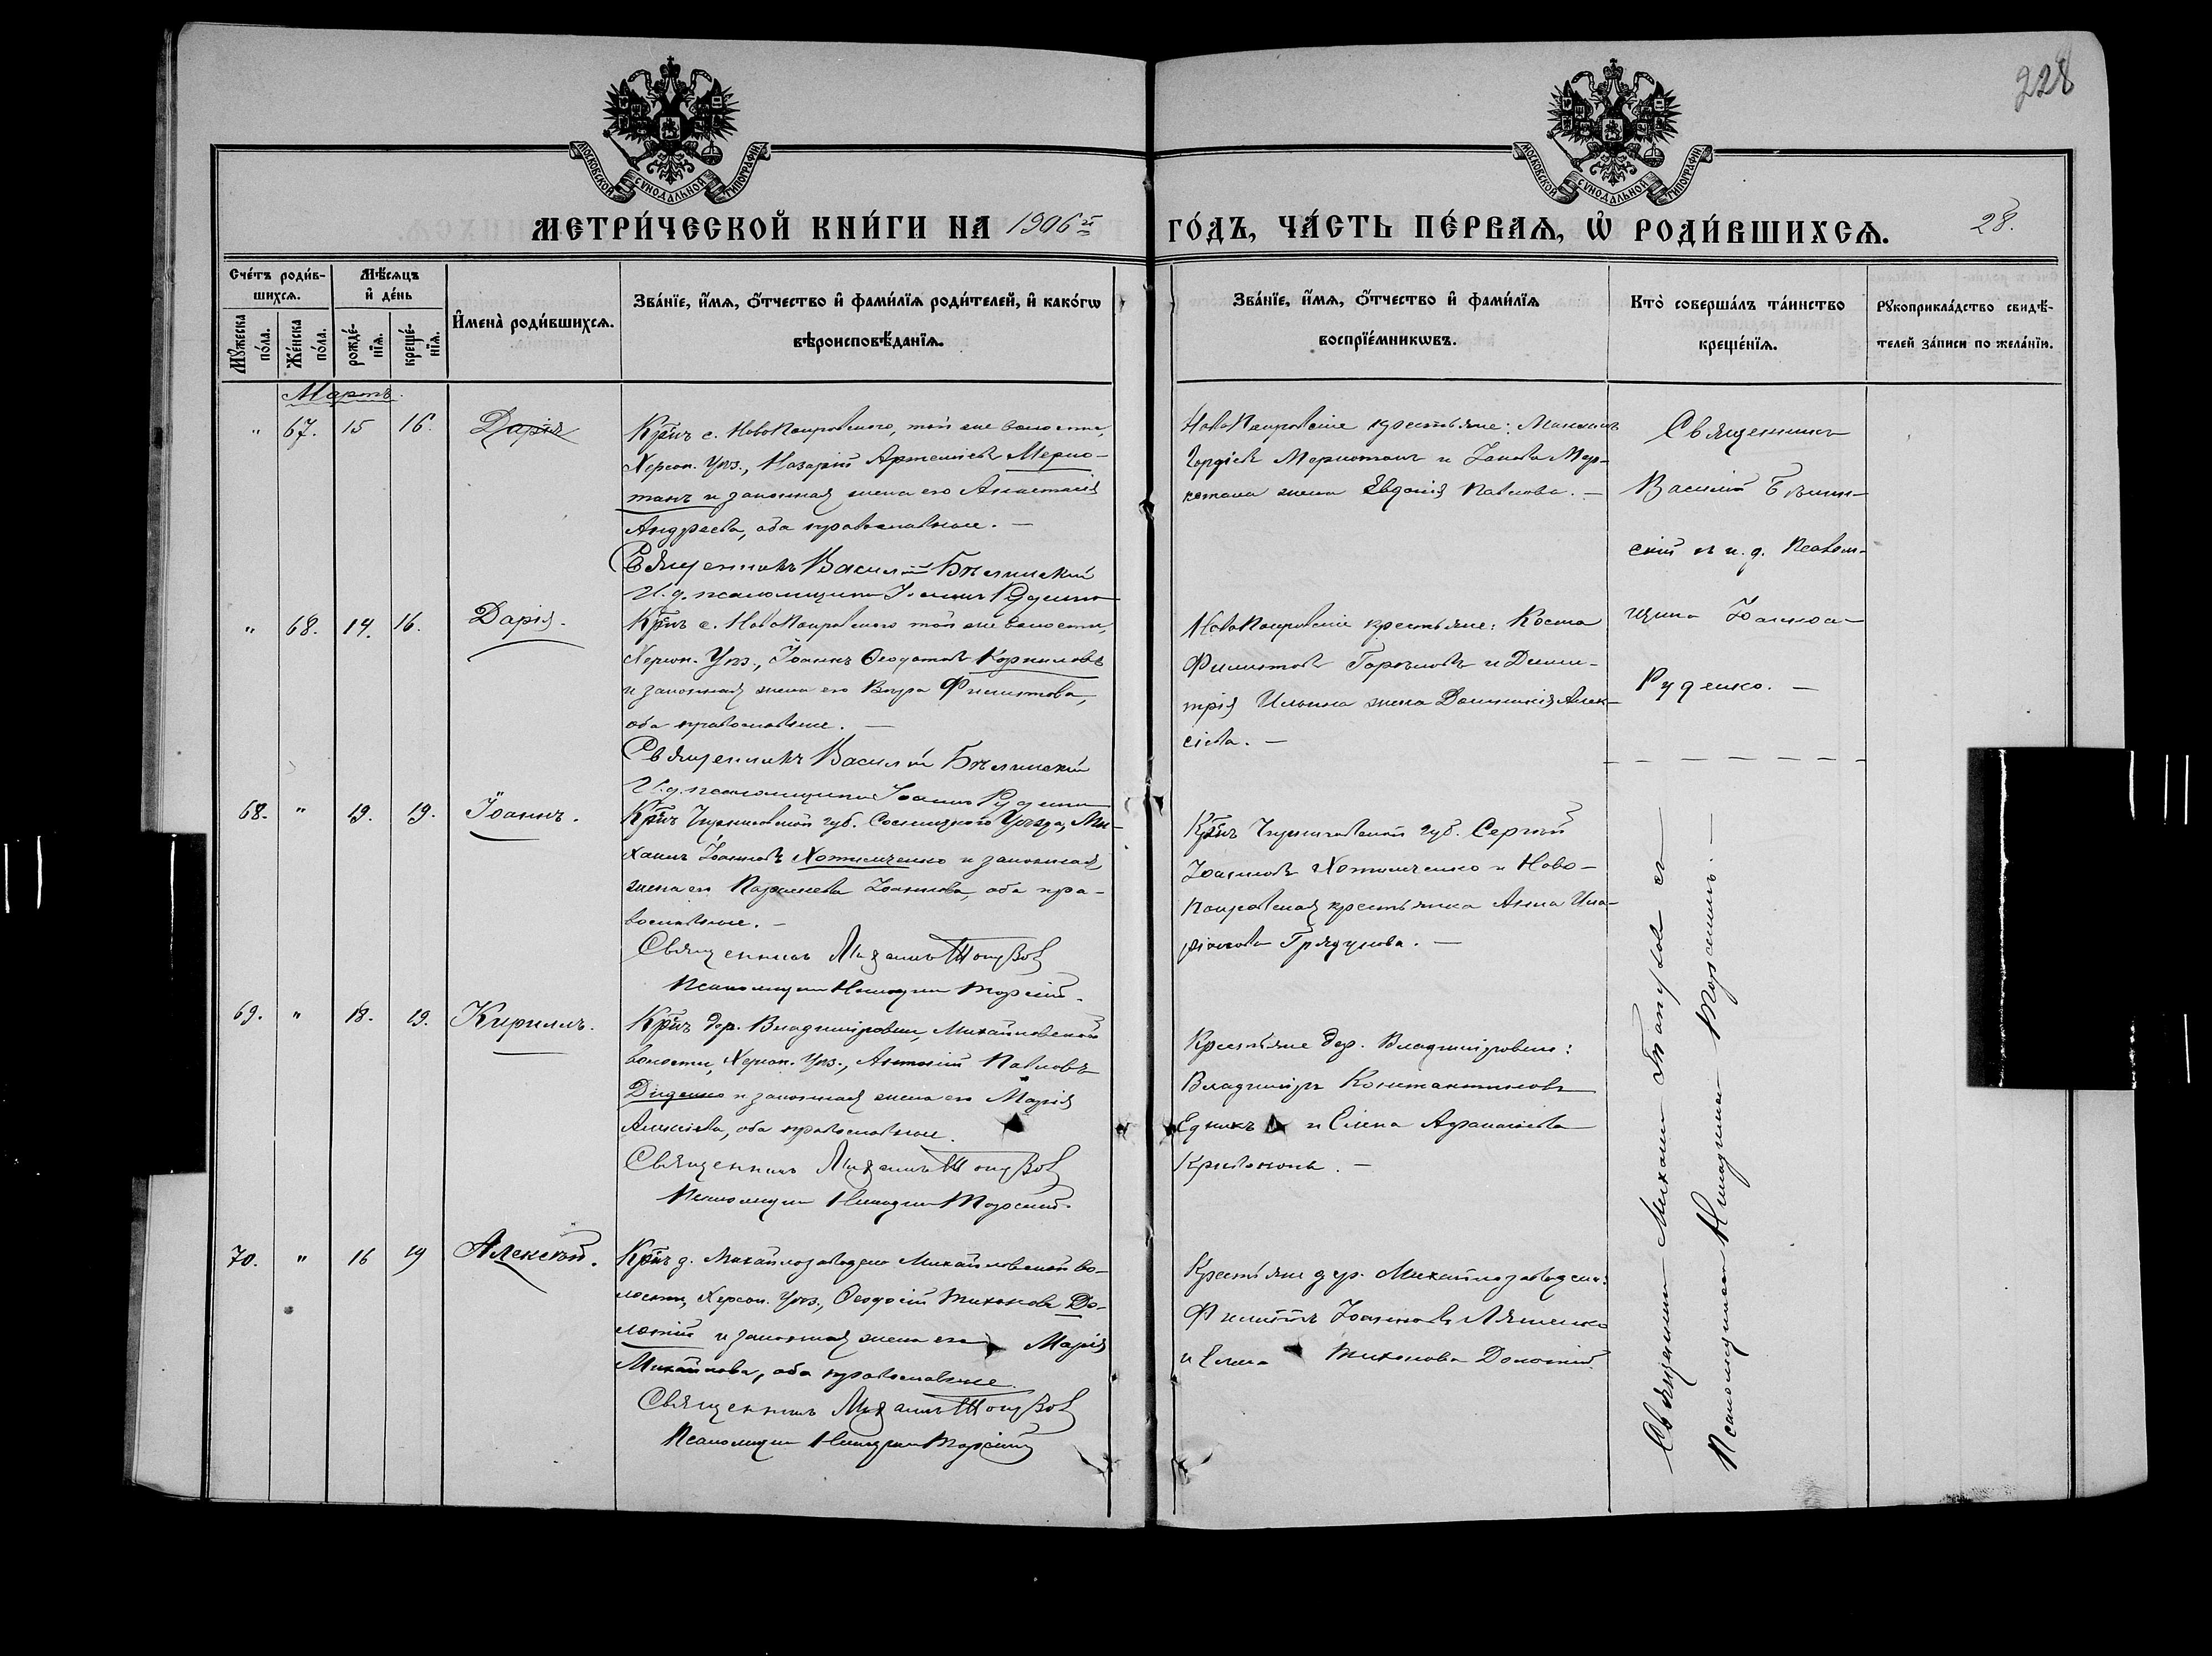 228
МОСКОВСКОЙ СѴНОДАЛЬНОЙ ТИПОГРАФІИ
МОСКОВСКОЙ СѴНОДАЛЬНОЙ ТИПОГРАФІИ
МЕТРИ́ЧЕСКОЙ КНИ́ГИ НА 1906й ГО́ДЪ, ЧА́СТЬ ПЕ́РВАѦ, Ѡ҆ РОДИ́ВШИХСѦ. 28.
Сче́тъ роди́вшихсѧ.
Мꙋ́жеска по́ла.
Же́нска по́ла.
Мѣ́сѧцъ и҆ де́нь
рожде́нїѧ.
креще́нїѧ.
И҆мена̀ роди́вшихсѧ.
Зва́нїе, и҆́мѧ, ѻ҆́тчество и҆ фами́лїѧ роди́телей, и҆ како́гѡ
вѣроисповѣ́данїѧ.
Зва́нїе, и҆́мѧ, ѻ҆́тчество и҆ фами́лїѧ
воспрїе́мникѡвъ.
Кто̀ соверша́лъ та́инство
креще́нїѧ.
Рꙋкоприкла́дство свидѣ́-
телей за́писи по жела́нїю.
Мартъ.
" 67. 15 16. Дарія
Кр̃нъ с. НовоПокровскаго, той же волости,
Херсон. Уѣз., Назарій Артеміевъ
и законная жена его Анастасія
Андреева, оба православные. —
Священникъ Василій Бѣлинскій
И. д. псаломщика Іоаннъ Руденко
НовоПокровскіе крестьяне:
Гордіевъ
жена Евдокія Павлова. —
Священникъ
Василій Бѣлин-
скій съ и. д. Псалом-
щика Іоанном
Руденко. —
" 68. 14. 16. Дарія.
Кр̃нъ с. НовоПокровскаго той же волости,
Херсон. Уѣз., Іоаннъ Корниловъ
и законная жена его Филиппова,
оба православные. —
Священникъ Василій Бѣлинскій
И. д. псаломщика Іоаннъ Руденко
НовоПокровскіе крестьяне: Косма
Филипповъ и Дими-
трія Ильина жена Домникія Алек-
сіева. —
68. " 19. 19. Іоаннъ.
Кр̃нъ Черниговской губ. Сосницкаго Уѣзда, Ми-
хаилъ Іоанновъ Хотимченко и законная
жена его Параскева Іоаннова, оба пра-
вославные. —
Священникъ Михаилъ
Псаломщикъ Никодимъ
Кр̃нъ Черниговской губ. Сергій
Іоанновъ Хотимченко и Ново-
Покровская крестьянка Анна Ила-
ріонова Грядунова. —
Священникъ Михаилъ съ
Псаломщикомъ Никодимомъ
69. " 18. 19. Кириллъ.
Кр̃нъ дер. Владиміровки, Михайловской
волости, Херсон. Уѣз., Антоній Павловъ
Диденко и законная жена его Марія
Алексіева, оба православные.
Священникъ Михаилъ
Псаломщикъ Никодимъ
Крестьяне дер. Владиміровки:
Владиміръ Константиновъ
и Елена Афанасіева
70. " 16 19 Алексѣй.
Кр̃нъ д. Михайловской во-
лости, Херсон. Уѣз., Ѳеодосій Тихоновъ До-
лотій и законная жена его Марія
Михайлова, оба православные.
Священникъ Михаилъ
Псаломщикъ Никодимъ
Крестьяне дер.
Филиппъ Іоанновъ Ляшенко
и Елена Тихонова Долотій.